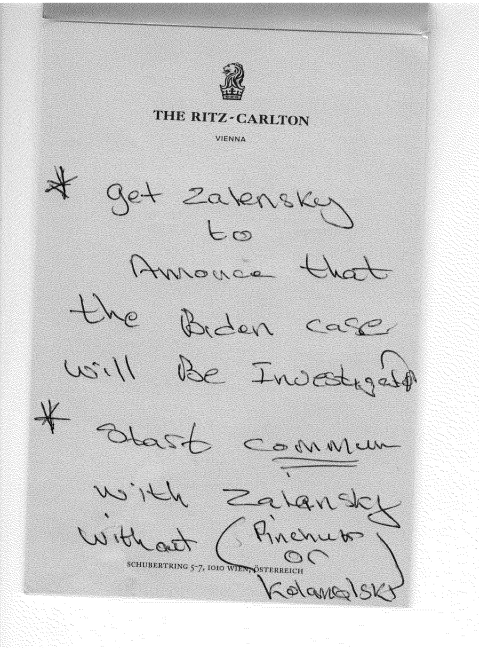 THE RITZ-CARLTON
VIENNA
* get Zalensky
to
Annouce that
the Biden case
will Be Investigated
* start commun
with Zalansky
without (Pinchuk
or
SCHUBERTRING 5-7, 1010 WIEN, ÖSTERREICH
Kolamoiski)